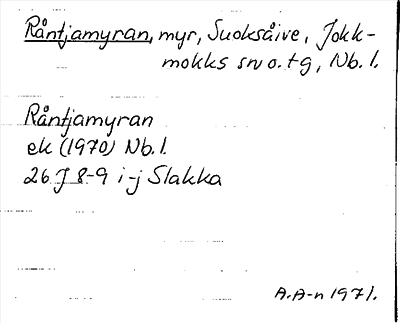 Råntjamyran, myr, Suoksåive, Jokk-
mokks sn o. tg, Nb. l.
Råntjamyran
ek (1970) Nb. l.
26 J 8-9 i-j Slakka
A. A-n 1971.